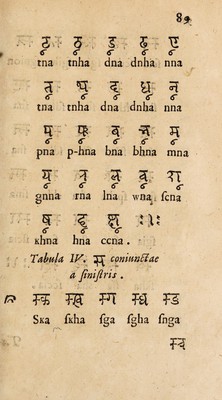 84
ट्न ठ्न ड्न ढ्न ण्न
tna tnha dna dnha nna
त्न थ्न द्न ध्न न्न
tna tnha dna dnha nna
प्न फ्न ब्न भ्न म्न
pna p-hna bna bhna mna
य्न र्न ल्न व्न श्न
gnna rna lna wna ſcna
ष्न ह्न क्ष्न
khna hna ccna.
Tabula IV. स coniunctae
a ſiniſtris.
स्क स्ख स्ग स्घ स्ङ
Ska ſkha ſga ſgha ſnga
स्च